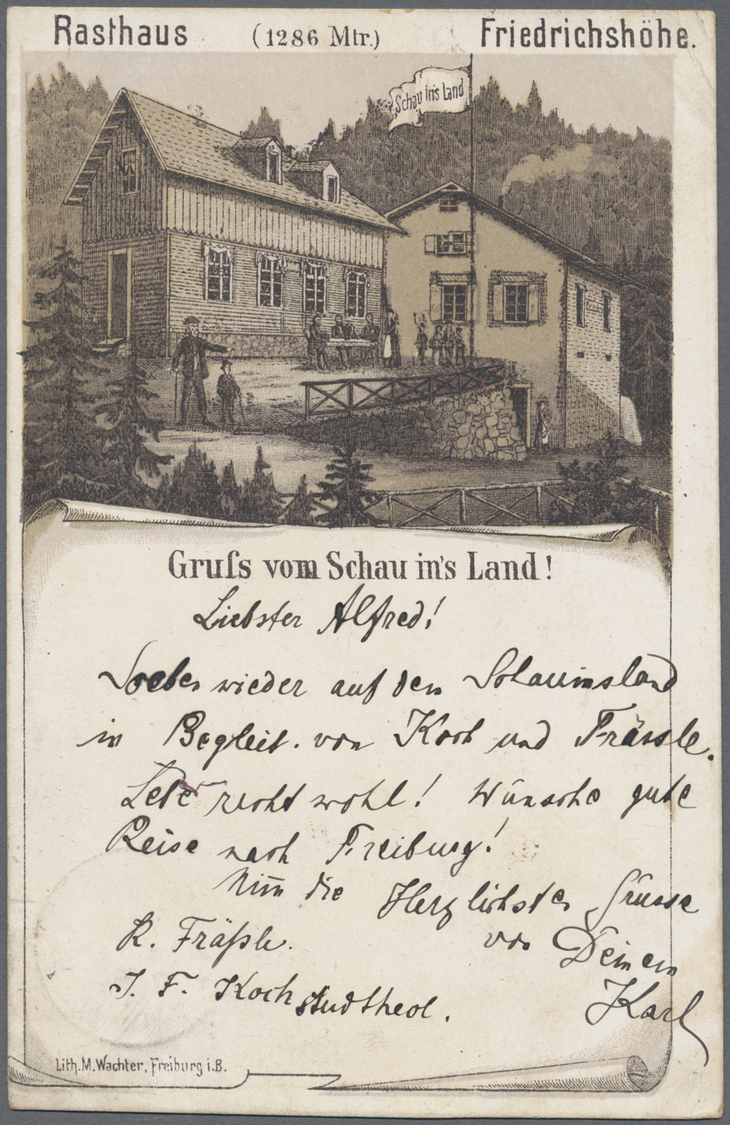 Rasthaus (1286 Mtr.) Friedrichshöhe.
Schau in's Land
Gruſs vom Schau in's Land!
Liebster Alfred!
Soeben wieder auf dem Schauinsland
in Begleit. von Koch und Frässle.
Lebe recht wohl! Wünsche gute
Reise nach Freiburg!
Nim̅ die Herzlichsten Grüsse
von Deinem
R. Fräßle.
J. F. Koch studtheol.
Karl
Lith. M. Wachter, Freiburg i. B.